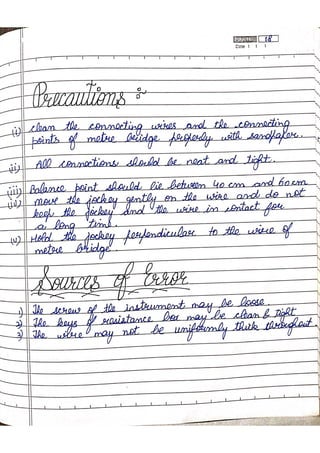 Page No. 18
Date
Precautions :-
(i) clean the connecting wires and the connecting
points of metre bridge properly with sandpaper.
(ii) All connections should be neat and tight.
(iii) Balance point should lie between 40 cm and 60 cm
(iv) Move the jockey gently on the wire and do not
keep the jockey and the wire in contact for
a long time.
(v) Hold the jockey perpendicular to the wire of
metre bridge.
Sources of Error
1) The screw of the instrument may be loose.
2) The keys of resistance box may be clean & tight
3) The wire may not be uniformly thick throughout.